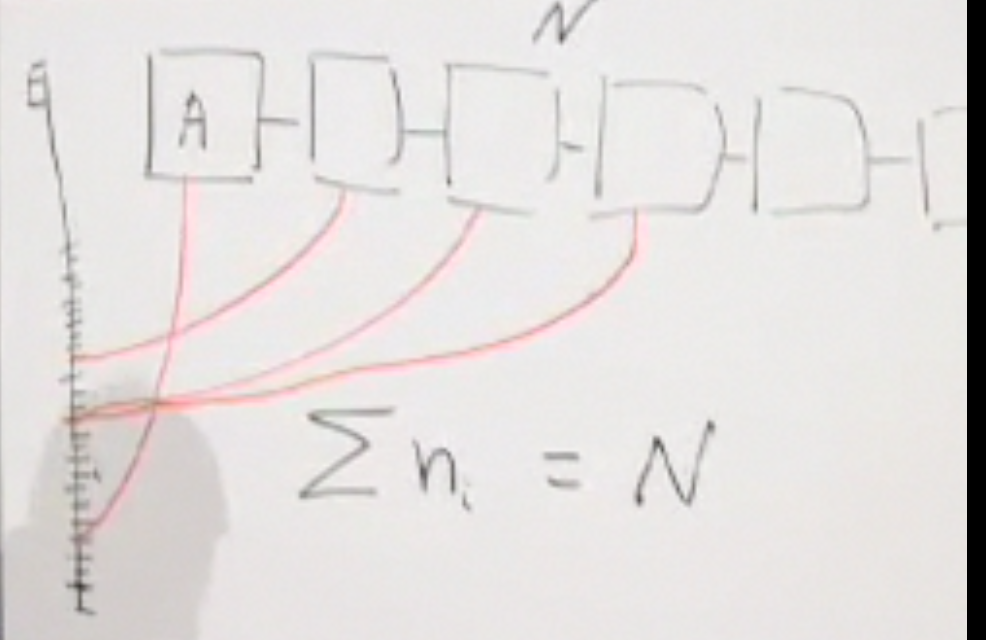 N
E
A
∑ nᵢ = N